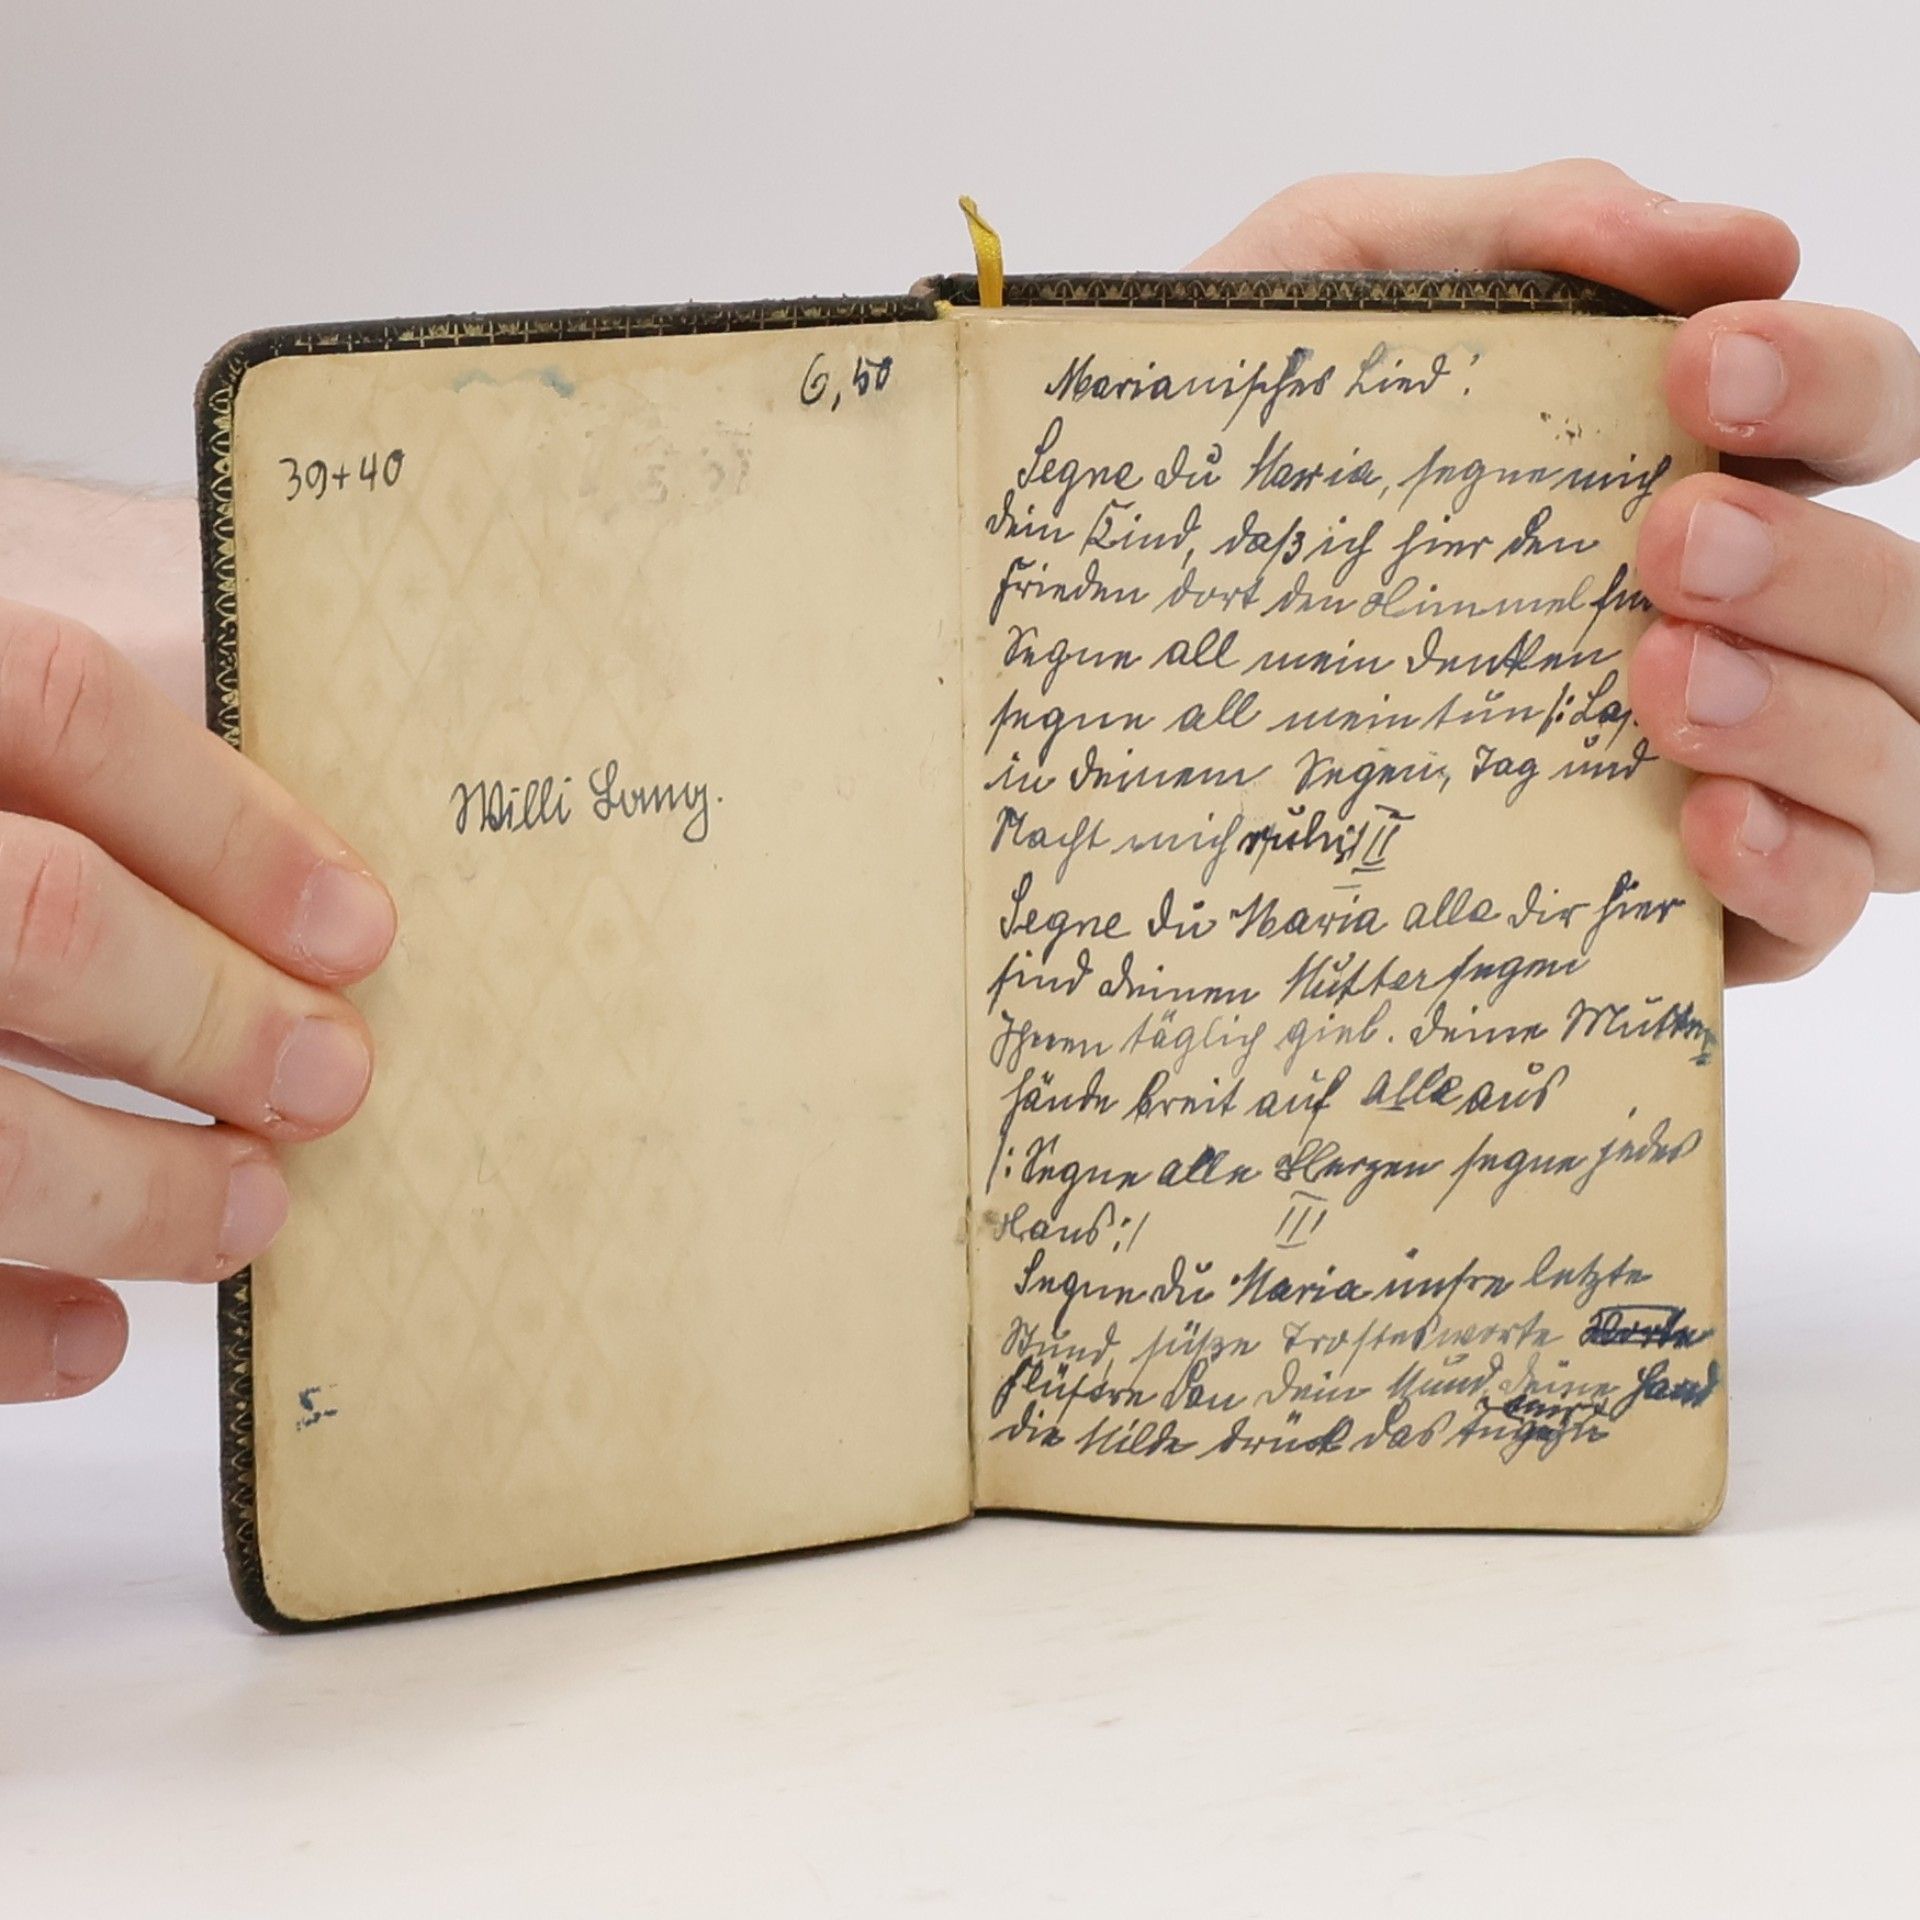 6,50
39+40
Willi Lang.
Marianisches Lied!
Segne du Maria, segne mich
dein Kind, daß ich hier den
Frieden dort den Himmel fin
Segne all mein denken
segne all mein tun /: Laß
in deinem Segen, Tag und
Nacht mich ruhn :/ II
Segne du Maria alle dir hier
sind deinen Muttersegen
Ihnen täglich gieb. deine Mutter=
hände breit auf alle aus
/: Segne alle Herzen segne jedes
Haus :/ III
Segne du Maria unsre letzte
Stund, süße Trostesworte
flüstre dan dein Mund, deine Hand
die Milde drück das